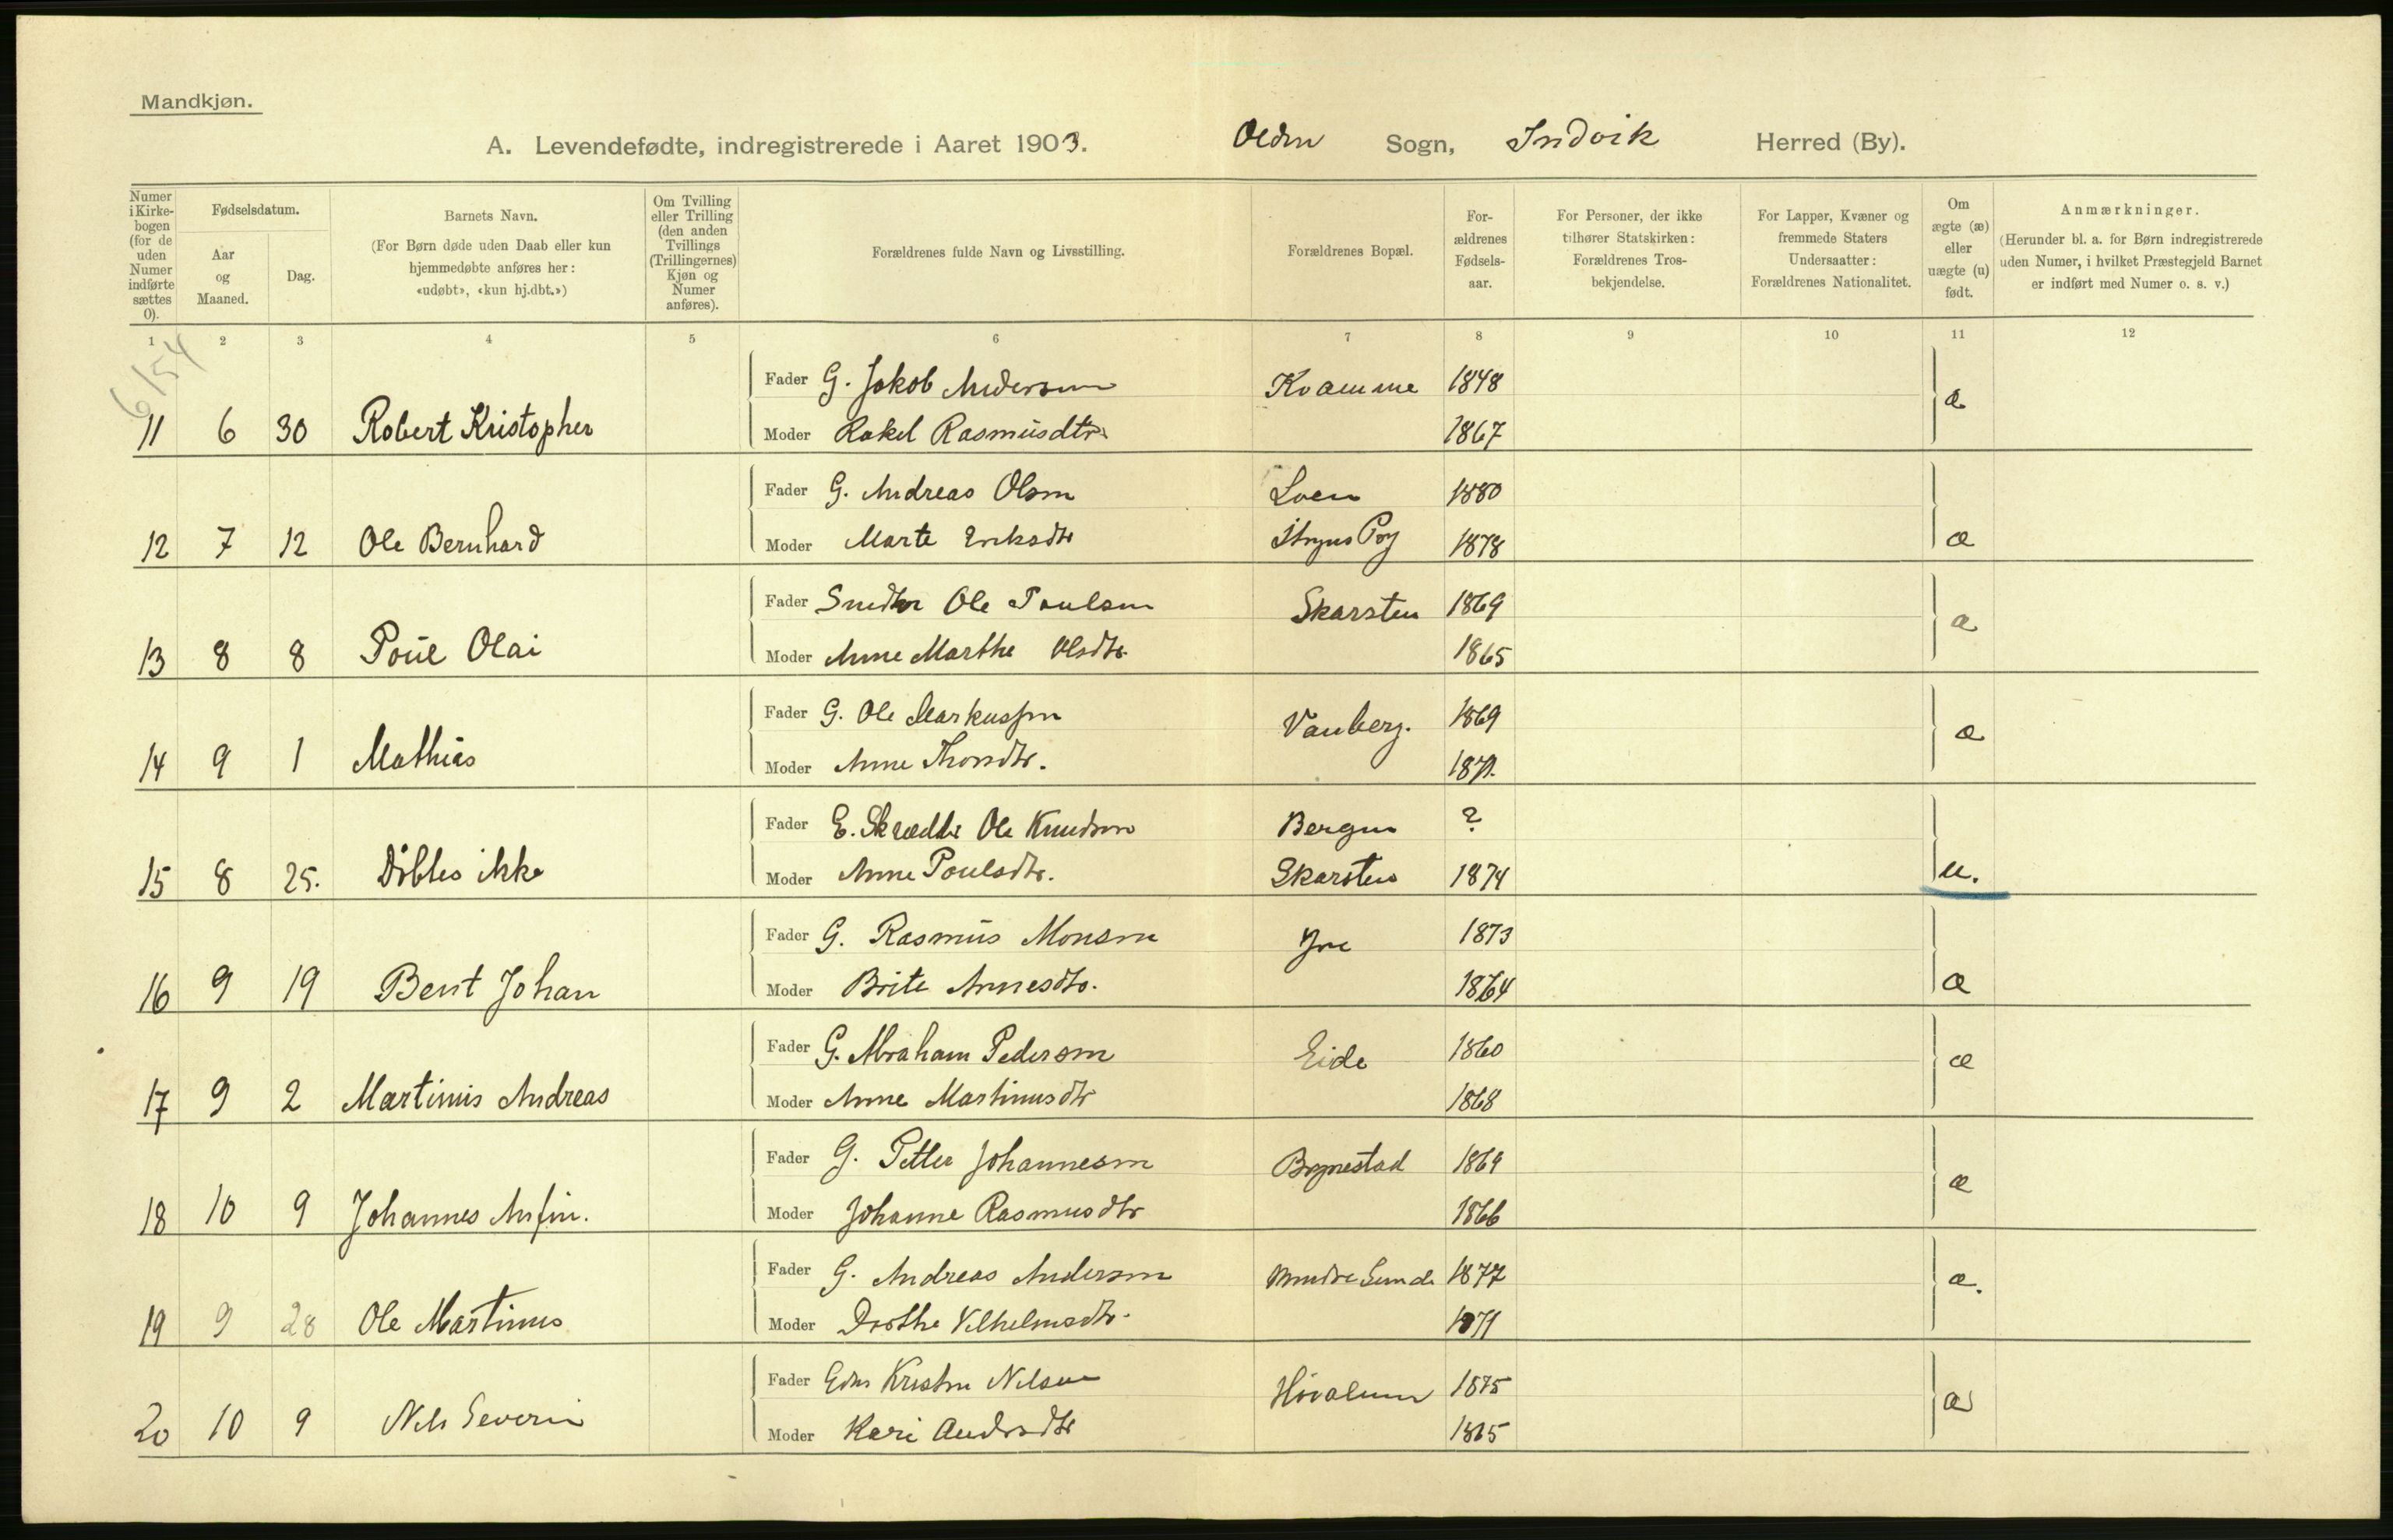 Mandkjøn.
A. Levendefødte, indregistrerede i Aaret 1903. Olden Sogn, Indvik Herred (By).
Numer i Kirkebogen (for de uden Numer indførte sættes 0).
Fødselsdatum.
Aar og Maaned.
Dag.
Barnets Navn.
(For Børn døde uden Daab eller kun hjemmedøbte anføres her: «udøbt», «kun hj.dbt.»)
Om Tvilling eller Trilling (den anden Tvillings (Trillingernes) Kjøn og Numer anføres).
Forældrenes fulde Navn og Livsstilling.
Forældrenes Bopæl.
Forældrenes Fødselsaar.
For Personer, der ikke tilhører Statskirken: Forældrenes Trosbekjendelse.
For Lapper, Kvæner og fremmede Staters Undersaatter: Forældrenes Nationalitet.
Om ægte (æ) eller uægte (u) født.
Anmærkninger.
(Herunder bl. a. for Børn indregistrerede uden Numer, i hvilket Præstegjeld Barnet er indført med Numer o. s. v.)
1 2 3 4 5 6 7 8 9 10 11 12
6154
Fader G. Jakob Andersen Kvamme 1848
11 6 30 Robert Kristopher Moder Rakel Rasmusdtr. 1867 æ
Fader G. Andreas Olsen Loen 1880
12 7 12 Ole Bernhard Moder Marte Eriksdtr Stryns Pgj 1878 æ
Fader Snedker Ole Paulsen Skarsten 1869
13 8 8 Poul Olai Moder Anne Marthe Olsdtr. 1865 æ
Fader G. Ole Markussen Vanberg. 1869
14 9 1 Mathias Moder Anne Thorsdtr. 1871. æ
Fader E. Skrædder Ole Knudsen Bergen ?
15 8 25. Døbtes ikke Moder Anne Poulsdtr. Skarsten 1874 u.
Fader G. Rasmus Monsen Yri 1873
16 9 19 Bent Johan Moder Brite Annesdtr. 1864 æ
Fader G. Abraham Pedersen Eide 1860
17 9 2 Martinus Andreas Moder Anne Martinusdtr 1868 æ
Fader G. Petter Johannesen Brynestad 1869
18 10 9 Johannes Anfin. Moder Johanne Rasmusdtr 1866 æ
Fader G. Andreas Andersen Mindre Sunde 1877
19 9 28 Ole Martinus Moder Dorthe Vilhelmsdtr. 1871 æ.
Fader Kristen Nilsen 1875
20 10 9 Nils Severin Moder Kari Andersdtr 1865 æ